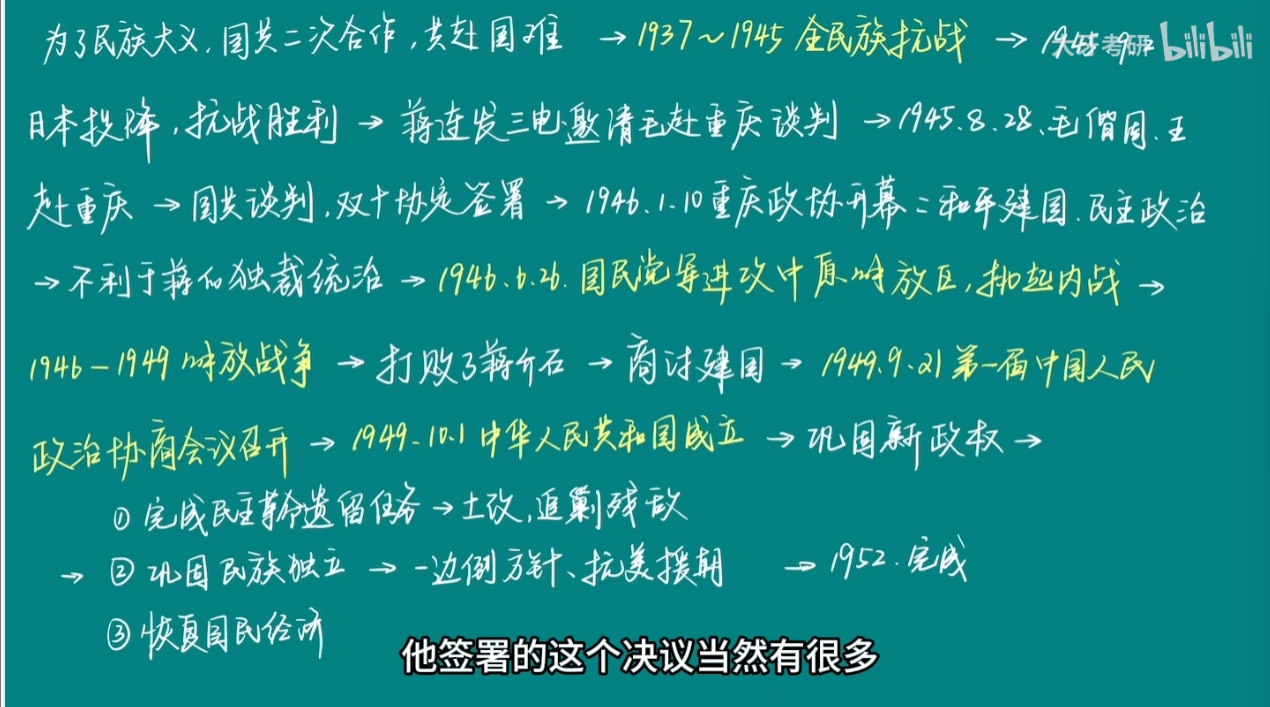 为了民族大义,国共二次合作,共赴国难 → 1937~1945 全民族抗战 → 1945.9.2
大牙考研 bilibili
日本投降,抗战胜利 → 蒋连发三电邀请毛赴重庆谈判 → 1945.8.28、毛偕周、王
赴重庆 → 国共谈判,双十协定签署 → 1946.1.10重庆政协开幕:和平建国、民主政治
→ 不利于蒋的独裁统治 → 1946.6.26.国民党军进攻中原解放区,挑起内战 →
1946-1949 解放战争 → 打败了蒋介石 → 商讨建国 → 1949.9.21 第一届中国人民
政治协商会议召开 → 1949.10.1 中华人民共和国成立 → 巩固新政权 →
① 完成民主革命遗留任务 → 土改,追剿残敌
→ ② 巩固民族独立 → 一边倒方针、抗美援朝 → 1952.完成
③ 恢复国民经济
他签署的这个决议当然有很多